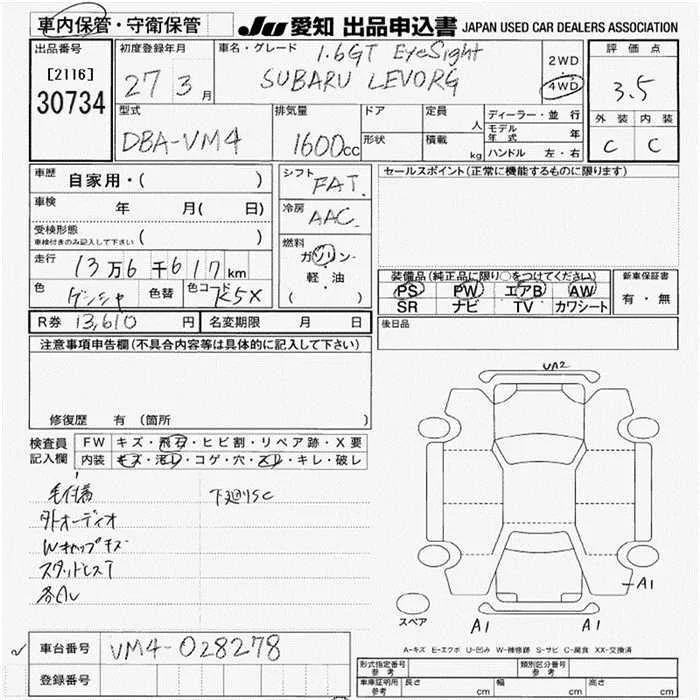 車内保管・守衛保管
JU 愛知 出品申込書 JAPAN USED CAR DEALERS ASSOCIATION
出品番号
[2116]
30734
初度登録年月
27 3 月
車名・グレード
1.6GT EyeSight
SUBARU LEVORG
2WD
4WD
評価点
3.5
型式
DBA-VM4
排気量
1600cc
ドア
形状
定員
人
積載
kg
ディーラー・並行
モデル年式 年
ハンドル 左・右
外装 内装
C C
車歴
自家用・( )
車検
年 月( 日)
受検形態
車検付きのみ記入して下さい ( )
走行
13万6千617km
色
ゲンシャ
色替
色コード K5X
シフト
FAT.
冷房
AAC
燃料
ガソリン・
軽・油
( )
セールスポイント(正常に機能するものに限ります)
装備品(純正品に限り○をつけてください)
PS PW エアB AW
SR ナビ TV カワシート
新車保証書
有・無
後日品
R券 13,610 円 名変期限 月 日
注意事項申告欄(不具合内容等は具体的に記入して下さい)
修復歴 有 (箇所 )
検査員
記入欄
FW キズ・飛石・ヒビ割・リペア跡・X要
内装 キズ・汚レ・コゲ・穴・スレ・キレ・破レ
下廻りSC
外オーディオ
Wキャップキズ
UA2
A1
A1
A1
スペア
A-キズ E-エクボ U-凹み W-補修跡 S-サビ C-腐食 XX-交換済
車台番号 VM4-028278
登録番号
形式指定番号 参考
類別区分番号 参考
車庫証明用 参考 長さ cm 幅 cm 高さ cm